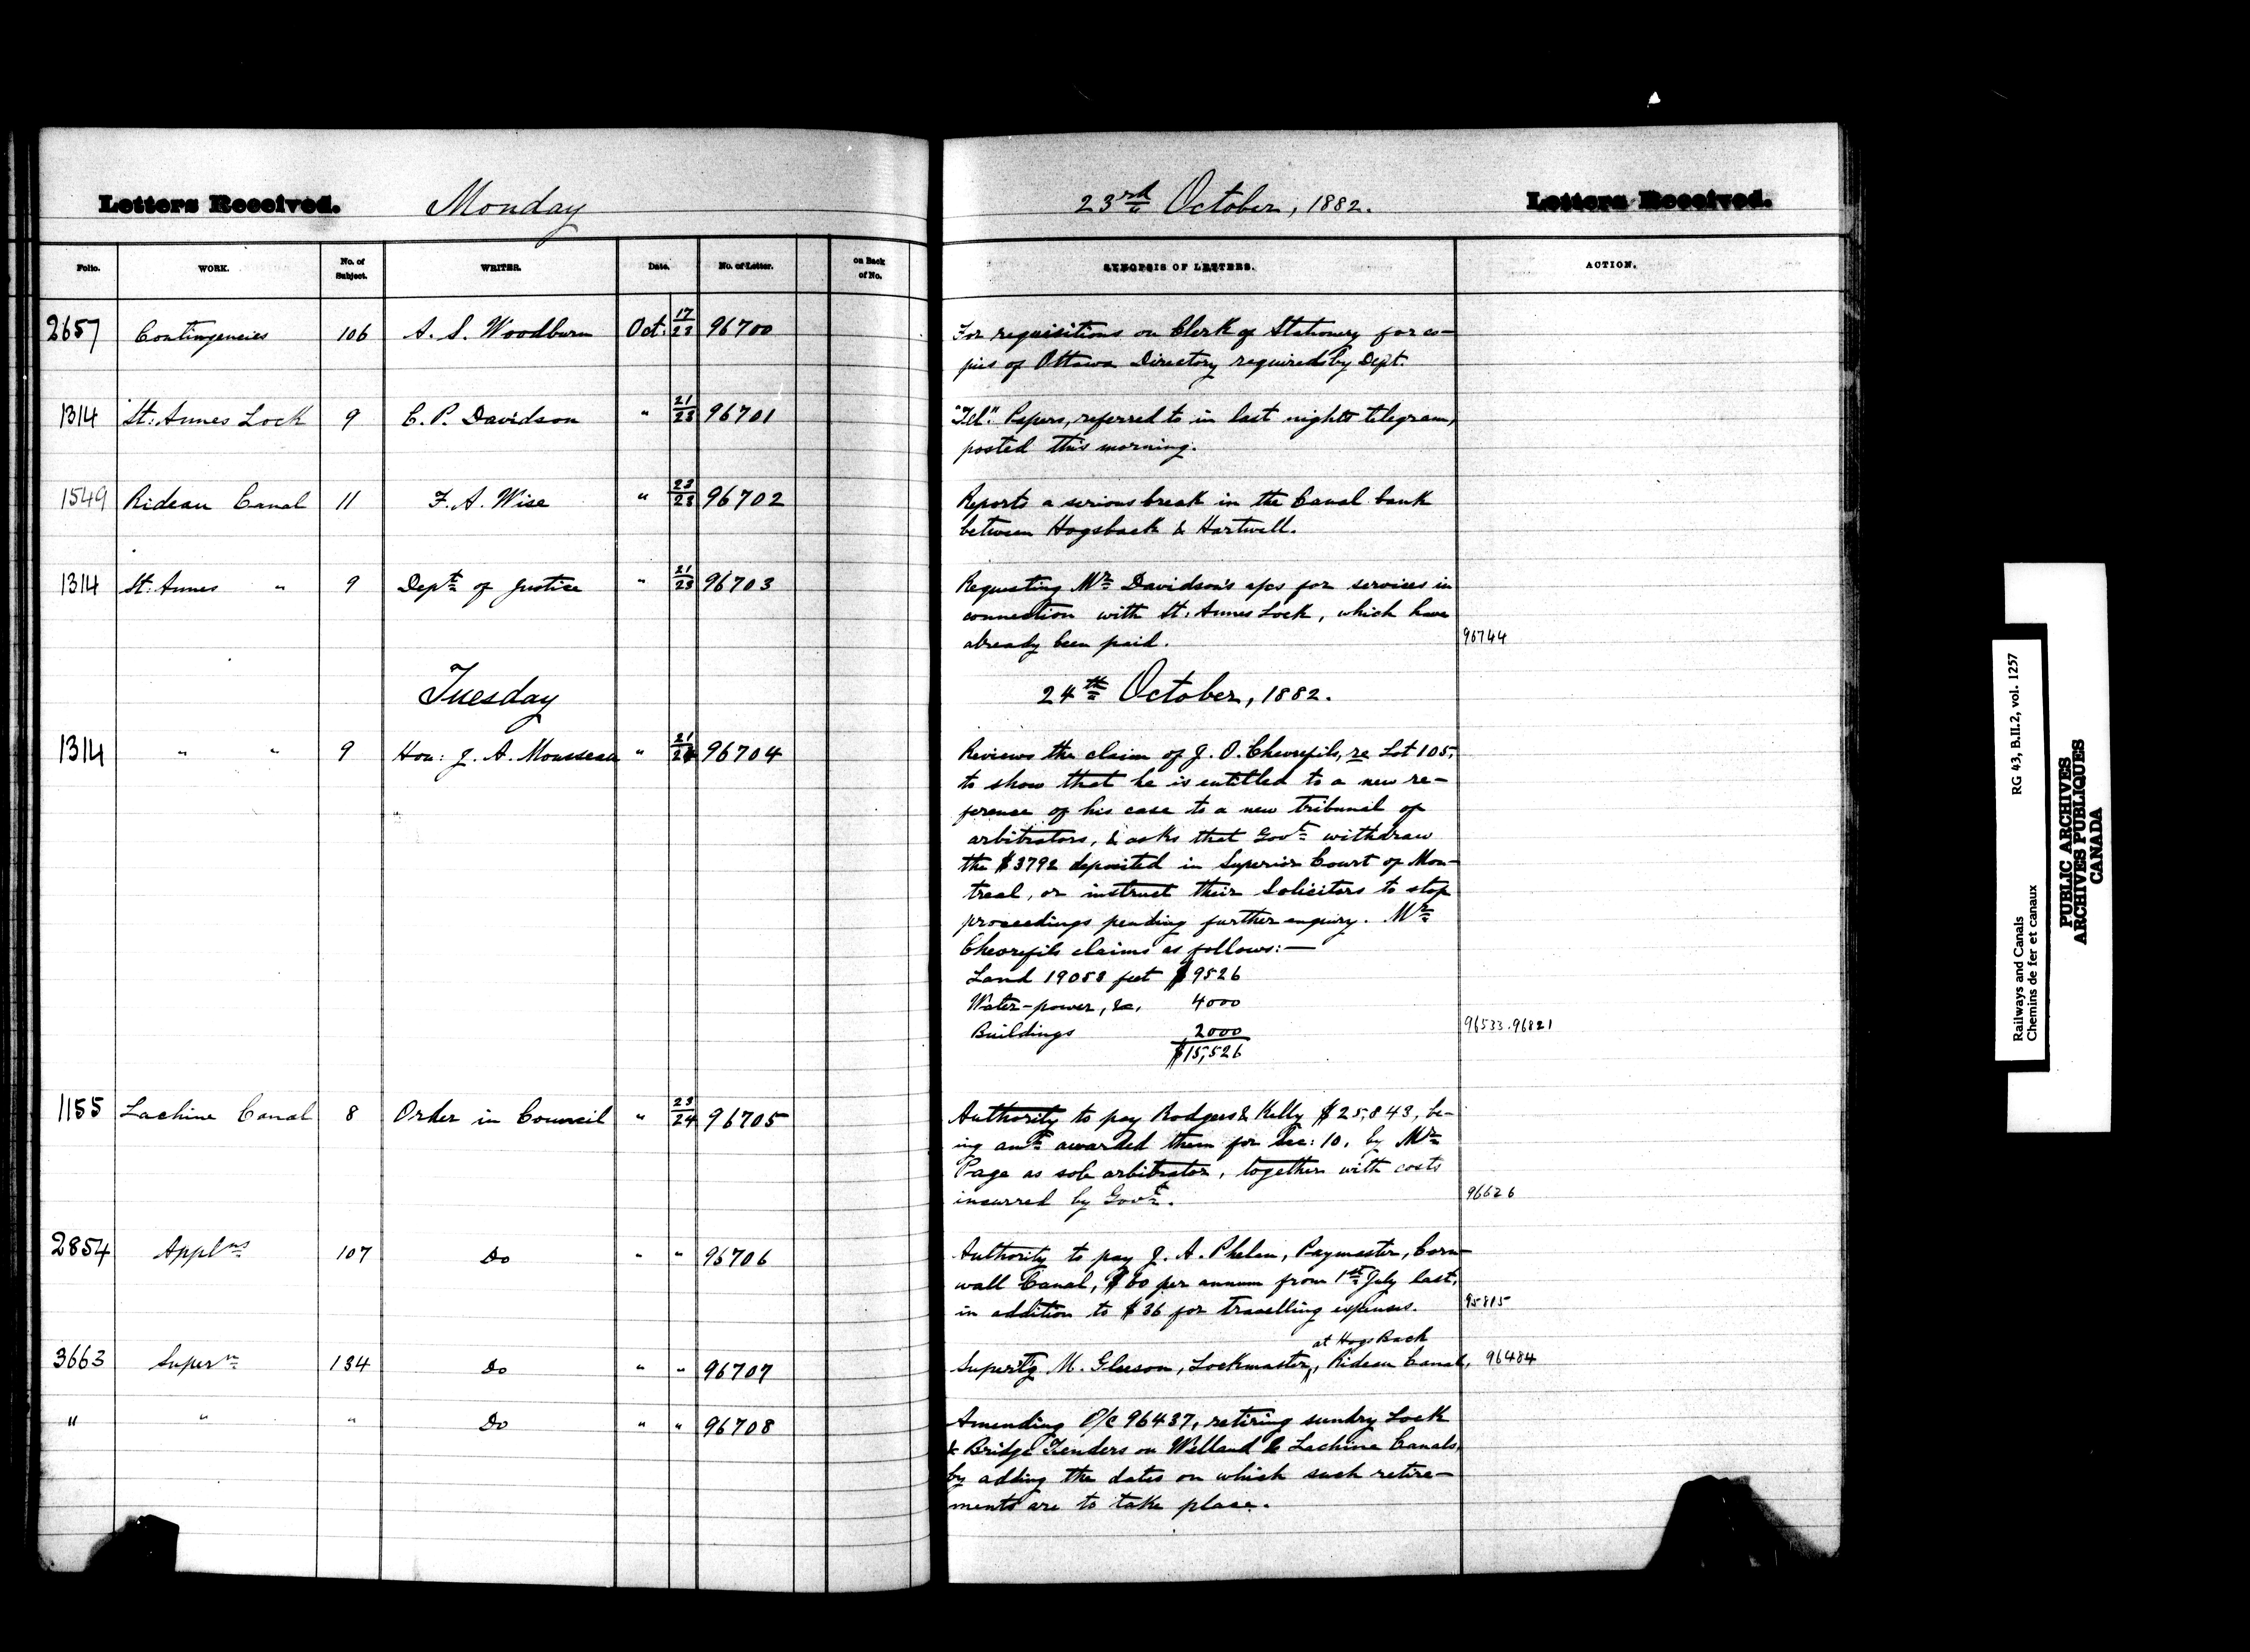 Letters Received. Monday 23rd October, 1882. Letters Received.
Folio. WORK. No. of Subject. WRITER. Date. No. of Letter. on Back of No. SYNOPSIS OF LETTERS. ACTION.
2657 Contingencies 106 A. S. Woodburn Oct: 17/23 96700 For requisitions on Clerk of Stationery for co-
pies of Ottawa Directory required by Dept.
1314 St: Annes Lock 9 C. P. Davidson " 21/23 96701 "Tel". Papers, referred to in last night's telegram,
posted this morning.
1549 Rideau Canal 11 F. A. Wise " 23/23 96702 Reports a serious break in the Canal bank
between Hogsback & Hartwell.
1314 St: Annes " 9 Dept of Justice " 21/23 96703 Requesting Mr Davidson's a/cs for services in
connection with St: Annes Lock, which have
already been paid. 96744
Tuesday 24th October, 1882.
1314 " " 9 Hon: J. A. Mousseau " 21/24 96704 Reviews the claim of J. O. Chevrefils, re Lot 105,
to show that he is entitled to a new re-
ference of his case to a new tribunal of
arbitrators, & asks that Govt withdraw
the $3792 deposited in Superior Court of Mon-
treal, or instruct their Solicitors to stop
proceedings pending further enquiry. Mr
Chevrefils claims as follows:—
Land 19058 feet $9526
Water-power, &c, 4000
Buildings 2000 96533.96821
$15,526
1155 Lachine Canal 8 Order in Council " 23/24 96705 Authority to pay Rodgers & Kelly $25,843, be-
ing amt awarded them for Sec: 10, by Mr
Page as sole arbitrator, together with costs
incurred by Govt. 96626
2854 Applns 107 Do " " 96706 Authority to pay J. A. Phelan, Paymaster, Corn-
wall Canal, $60 per annum from 1st July last,
in addition to $36 for travelling expenses. 95815
at Hogs Back
3663 Supern 134 Do " " 96707 Supertg M. Gleeson, Lockmaster, Rideau Canal, 96484
" " " Do " " 96708 Amending O/C 96437, retiring sundry Lock
& Bridge Tenders on Welland & Lachine Canals,
by adding the dates on which such retire-
ments are to take place.
Railways and Canals RG 43, B.II.2, vol. 1257
Chemins de fer et canaux
PUBLIC ARCHIVES
ARCHIVES PUBLIQUES
CANADA